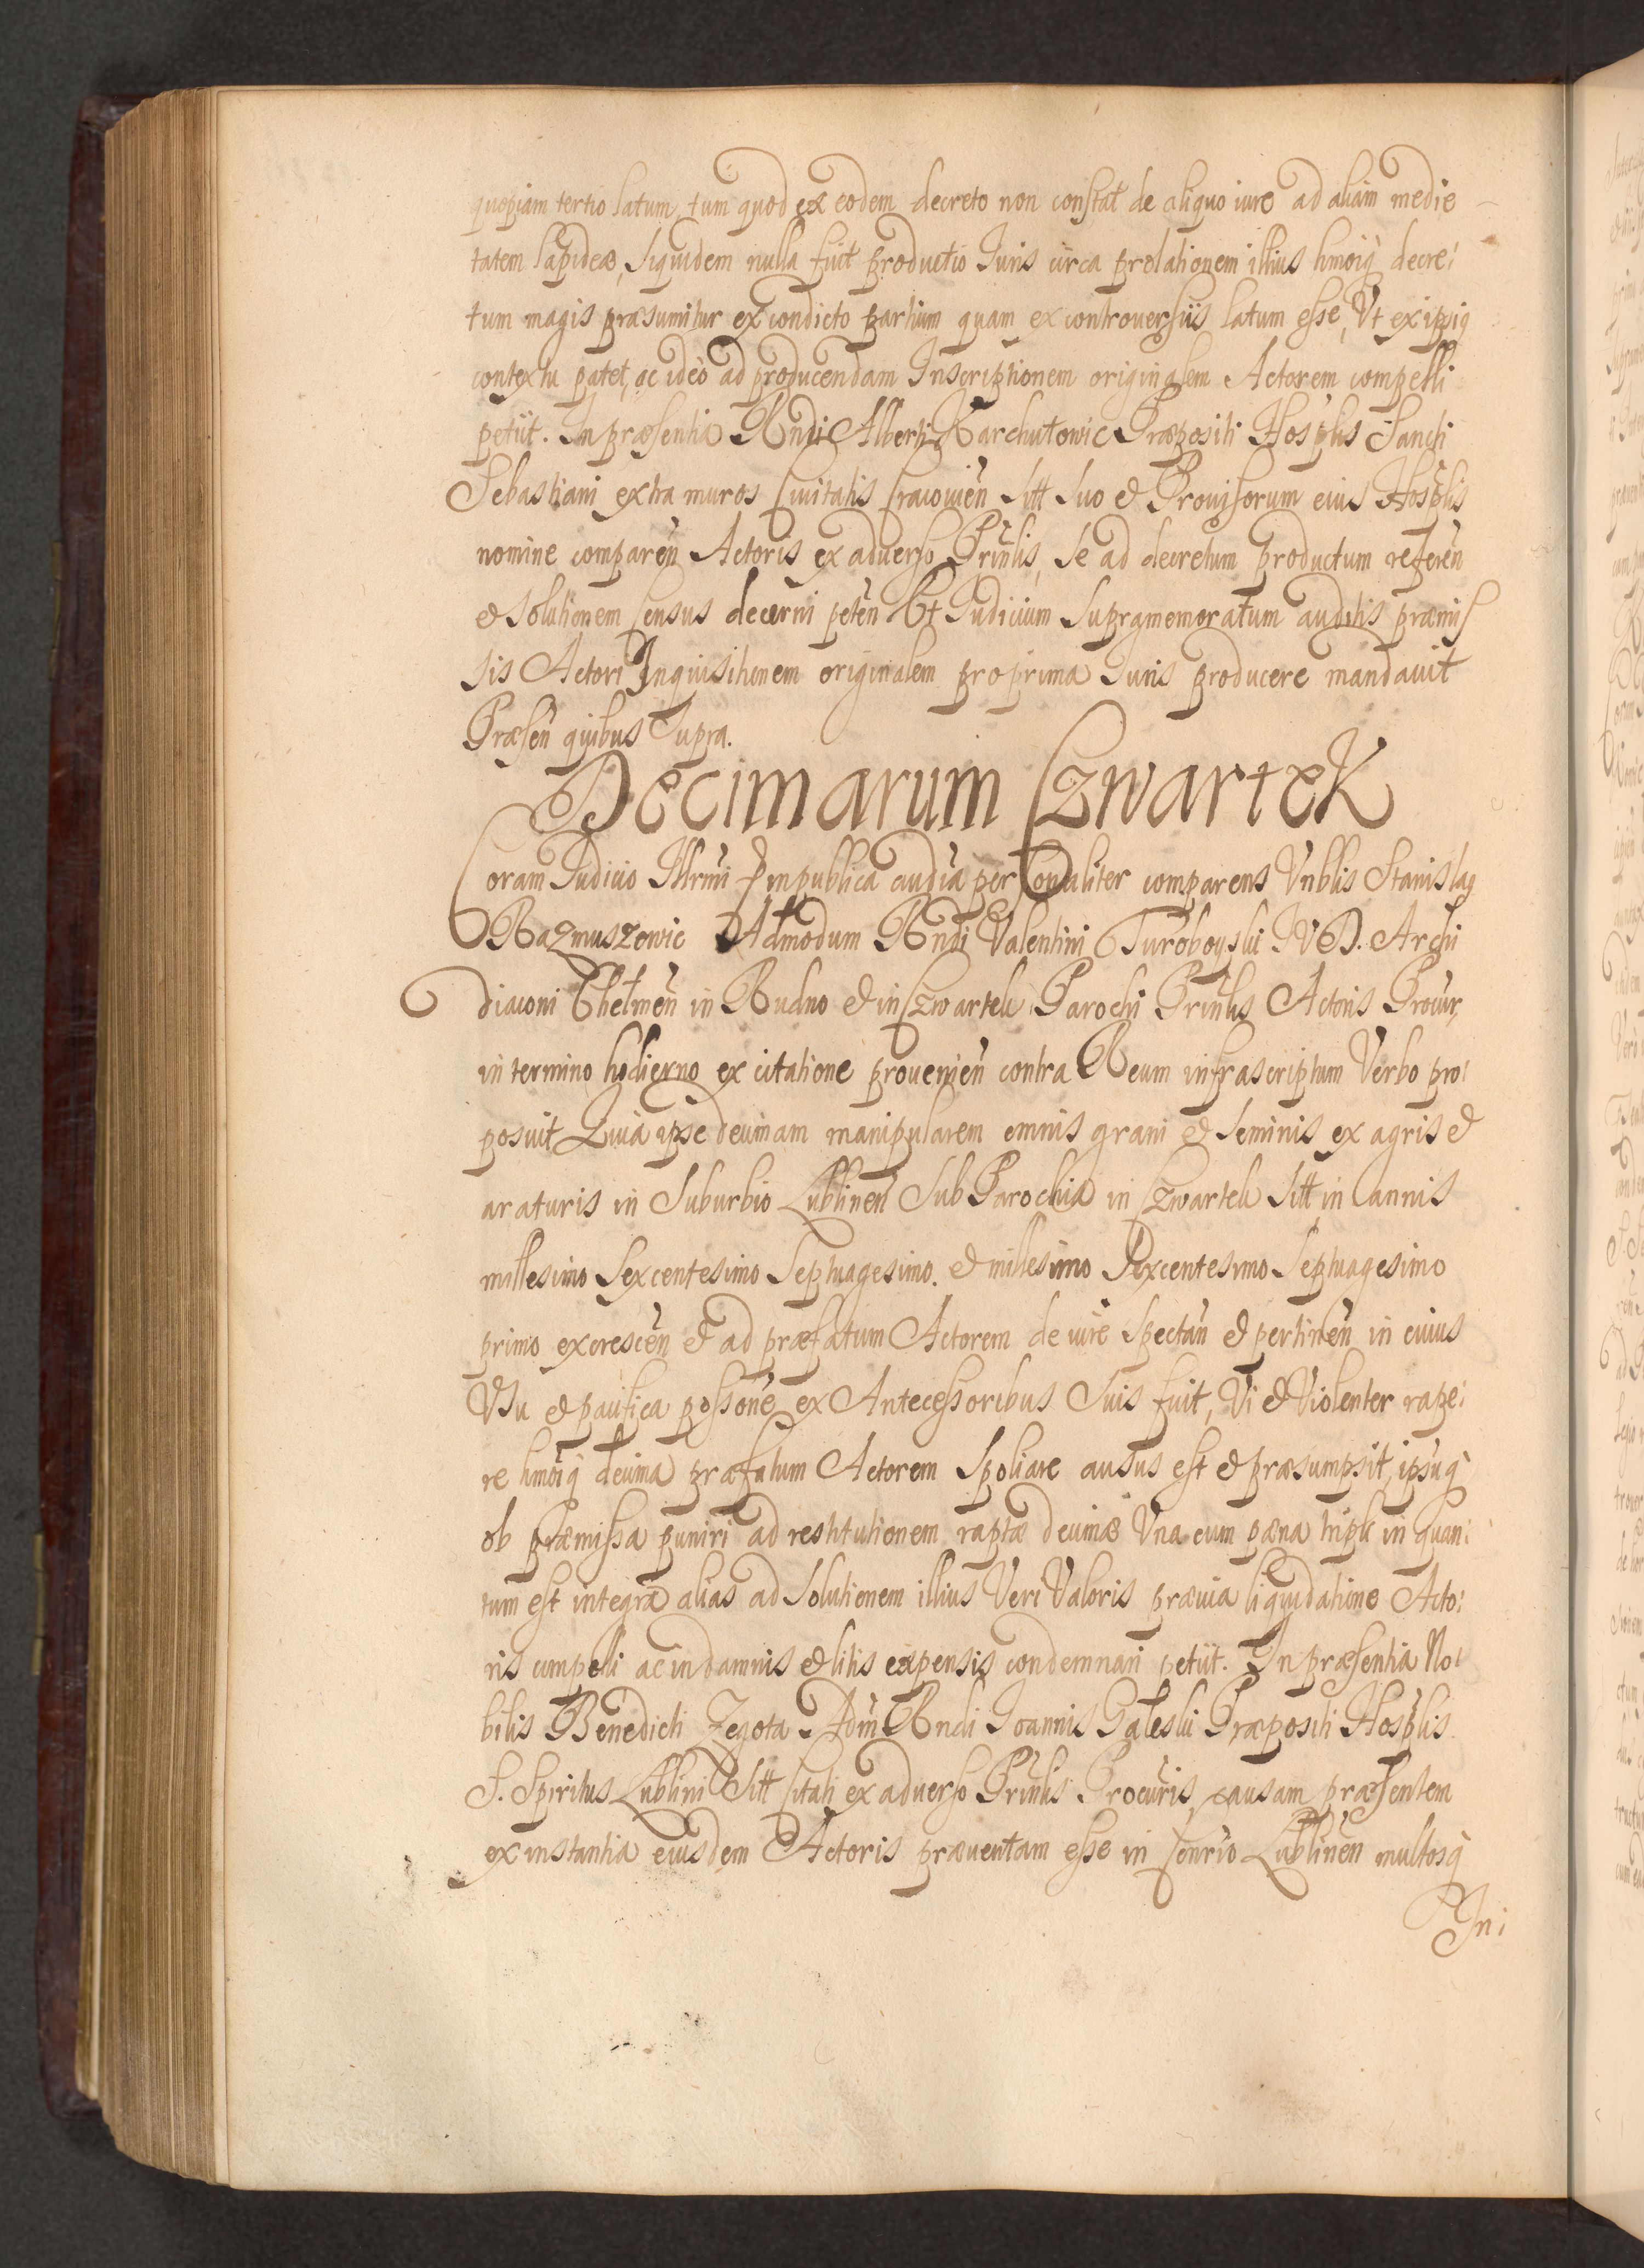 quopiam tertio latum, tum quod ex eodem decreto non constat de aliquo iure ad aliam medie
tatem lapideæ, siquidem nulla fuit productio Iuris circa prolationem illius hmoiq̃ decre:
tum magis præsumitur ex condicto partium quam ex controuersijs latum esse, Vt ex ipsiq
contextu patet, ac ideò ad producendam Inscriptionem originalem Actorem compelli
petijt. In præsentia Rndi Alberti Karchutowic Præpositi Hosplis Sancti
Sebastiani extra muros Ciuitatis Cracouieñ sitt suo et Prouisorum eius Hosplis
nomine compareñ Actoris ex aduerso Prinlis, se ad decretum productum refereñ
et solutionem Census decerni peteñ Et Iudicium supramemoratum auditis præmis
sis Actori Inquisitionem originalem pro prima Iuris producere mandauit
Præseñ quibus supra.
Decimarum Czwartek
Coram Iudicio Illrmi P in publica audia personaliter comparens Nblis Stanislaq
Razmuszowic Admodum Rndi Valentini Turoboyski IVD. Archi
diaconi Chelmeñ in Rudno et in Czwartek Parochi Prinlis Actoris Procur,
in termino hodierno ex citatione prouenieñ contra Reum infrascriptum Verbo pro:
posuit, Quia ipse decimam manipularem omnis grani et seminis ex agris et
araturis in suburbio Lublineñ sub Parochia in Czwartek sitt in annis
millesimo sexcentesimo septuagesimo. et millesimo sexcentesimo septuagesimo
primo excresceñ et ad præfatum Actorem de iure spectañ et pertineñ in cuius
Vsu et pacifica possone ex Antecessoribus suis fuit, Vi et Violenter rape:
re hmoiq̃ decima præfatum Actorem spoliare ausus est et præsumpsit, ipsuq̃
ob præmissa puniri ad restitutionem raptæ decimæ Vna cum pæna tripli in quan:
tum est integra alias ad solutionem illius Veri Valoris præuia liquidatione Acto:
ris compelli ac in damnis et litis expensis condemnari petijt. In præsentia No:
bilis Benedicti Zegota Adm Rndi Ioannis Galeski Præpositi Hosplis
S. Spiritus Lublini sitt Citati ex aduerso Prinlis Procuris, causam præsentem
ex instantia eiusdem Actoris præuentam esse in Conrio Lublineñ multosq̃
In: